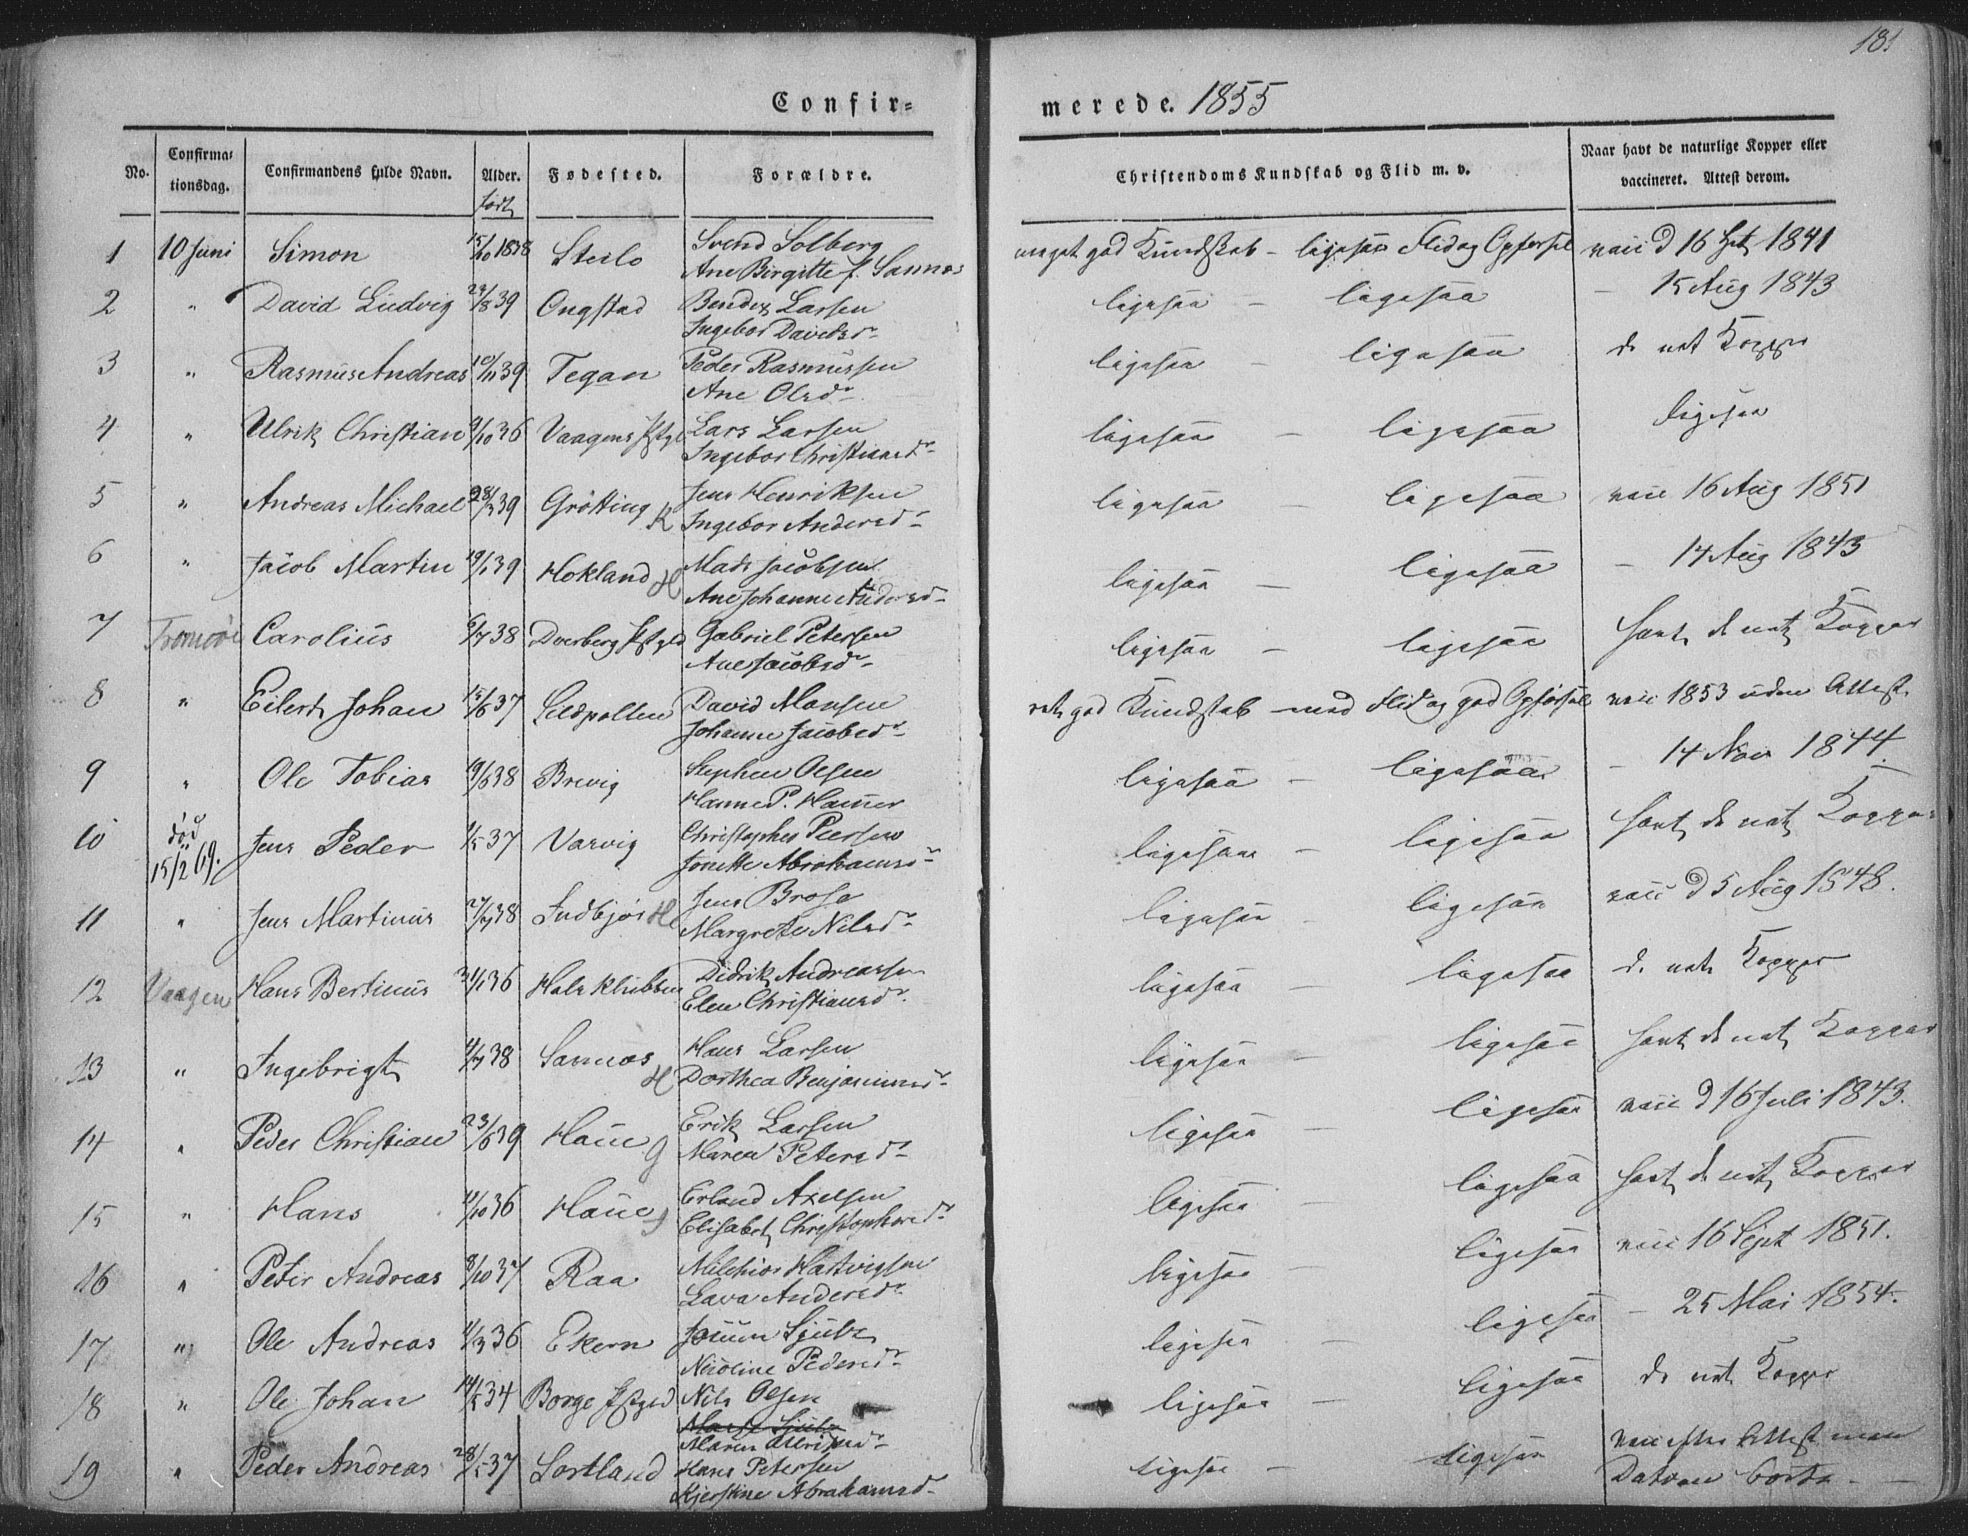 181
Confir= merede. 1855
No. Confirma= tionsdag. Confirmandens fulde Navn. Alder. Fødested. Forældre. Christendoms Kundskab og Flid m. v. Naar havt de naturlige Kopper eller vaccineret. Attest derom.
født
1 10 Juni Simon 15/10 1838 Steilo Svend Solberg meget god Kundskab – ligesaa Flid og Opførsel vacc d 16 1841
Ane Birgitte f. Sannes
2 " David Ludvig 24/8 39 Ongstad Bendix Larsen ligesaa – ligesaa – 15 Aug 1843
Ingebor Davidsdr
3 " Rasmus Andreas 10/11 39 Tegan Peder Rasmussen ligesaa – ligesaa d. nat Kopper
Ane Olsdr
4 " Ulrik Christian /10 36 Vaagens Pstgld Lars Larsen ligesaa – ligesaa ligesaa
Ingebor Christiansdr
5 " Andreas Michael 28/ 39 Grøtting K Jens Henriksen ligesaa – ligesaa vacc 16 Aug 1851
Ingebor Andersdr
6 " Jacob Martin 19/1 39 Hokland H Mads Jacobsen ligesaa – ligesaa – 14 Aug 1843
Ane Johanne Andersdr
7 Tromsøe Carolius 6/7 38 Dverberg Pstgld Gabriel Petersen ligesaa – ligesaa havt de nat Kopper
Ane Jacobsdr
8 " Eilert Johan 15/6 37 Sildpollen David Monsen ret god Kundskab – med Flid og god Opførsel vacc 1853 uden Attest
Johanne Jacobsdr
9 " Ole Tobias 19/6 38 Brevig Stephen Olsen ligesaa – ligesaa – 14 Nov 1844.
Hanne P. Hamer
10 død 15/2 69. Jens Peder 1/5 37 Varvig Christopher Peersen ligesaa – ligesaa havt de nat Kopper
Jonette Abrahamsdr
11 " Jens Martinus 27/7 38 Indbjør H Jens Brose ligesaa – ligesaa vacc d 5 Aug 1848.
Margrete Nilsdr
12 Vaagen Hans Bertinus 31/1 36 Hals klubben Didrik Andreassen ligesaa – ligesaa d. nat Kopper
Elen Christiansdr.
13 " Ingebrigt 4/7 38 Sannæs H Hans Larsen ligesaa – ligesaa havt de nat Kopper
Dorthea Benjaminsdr
14 " Peder Christian 23/6 39 Haue g Erik Larsen ligesaa – ligesaa vacc d 16 Juli 1843.
Maren Petersdr
15 " Hans 11/10 36 Haue g Erland Axelsen ligesaa – ligesaa havt de nat Kopper
Elisabet Christophersdr
16 " Peter Andreas 8/10 37 Raa Milchior Hartvigsen ligesaa – ligesaa vacc 16 Sept 1851.
Lava Andersdr
17 " Ole Andreas 1/3 36 Ekern Ljubz ligesaa – ligesaa – 25 Mai 1854.
Nicoline Pedersdr
18 " Ole Johan 14/5 34 Borge Pstgld Nils Olsen ligesaa – ligesaa d. nat Kopper
Maren
19 " Peder Andreas 28/5 37 Sortland Hans Petersen ligesaa – ligesaa vacc efter Attest men
Kjerstine Abrahamsdr Datoen borte –